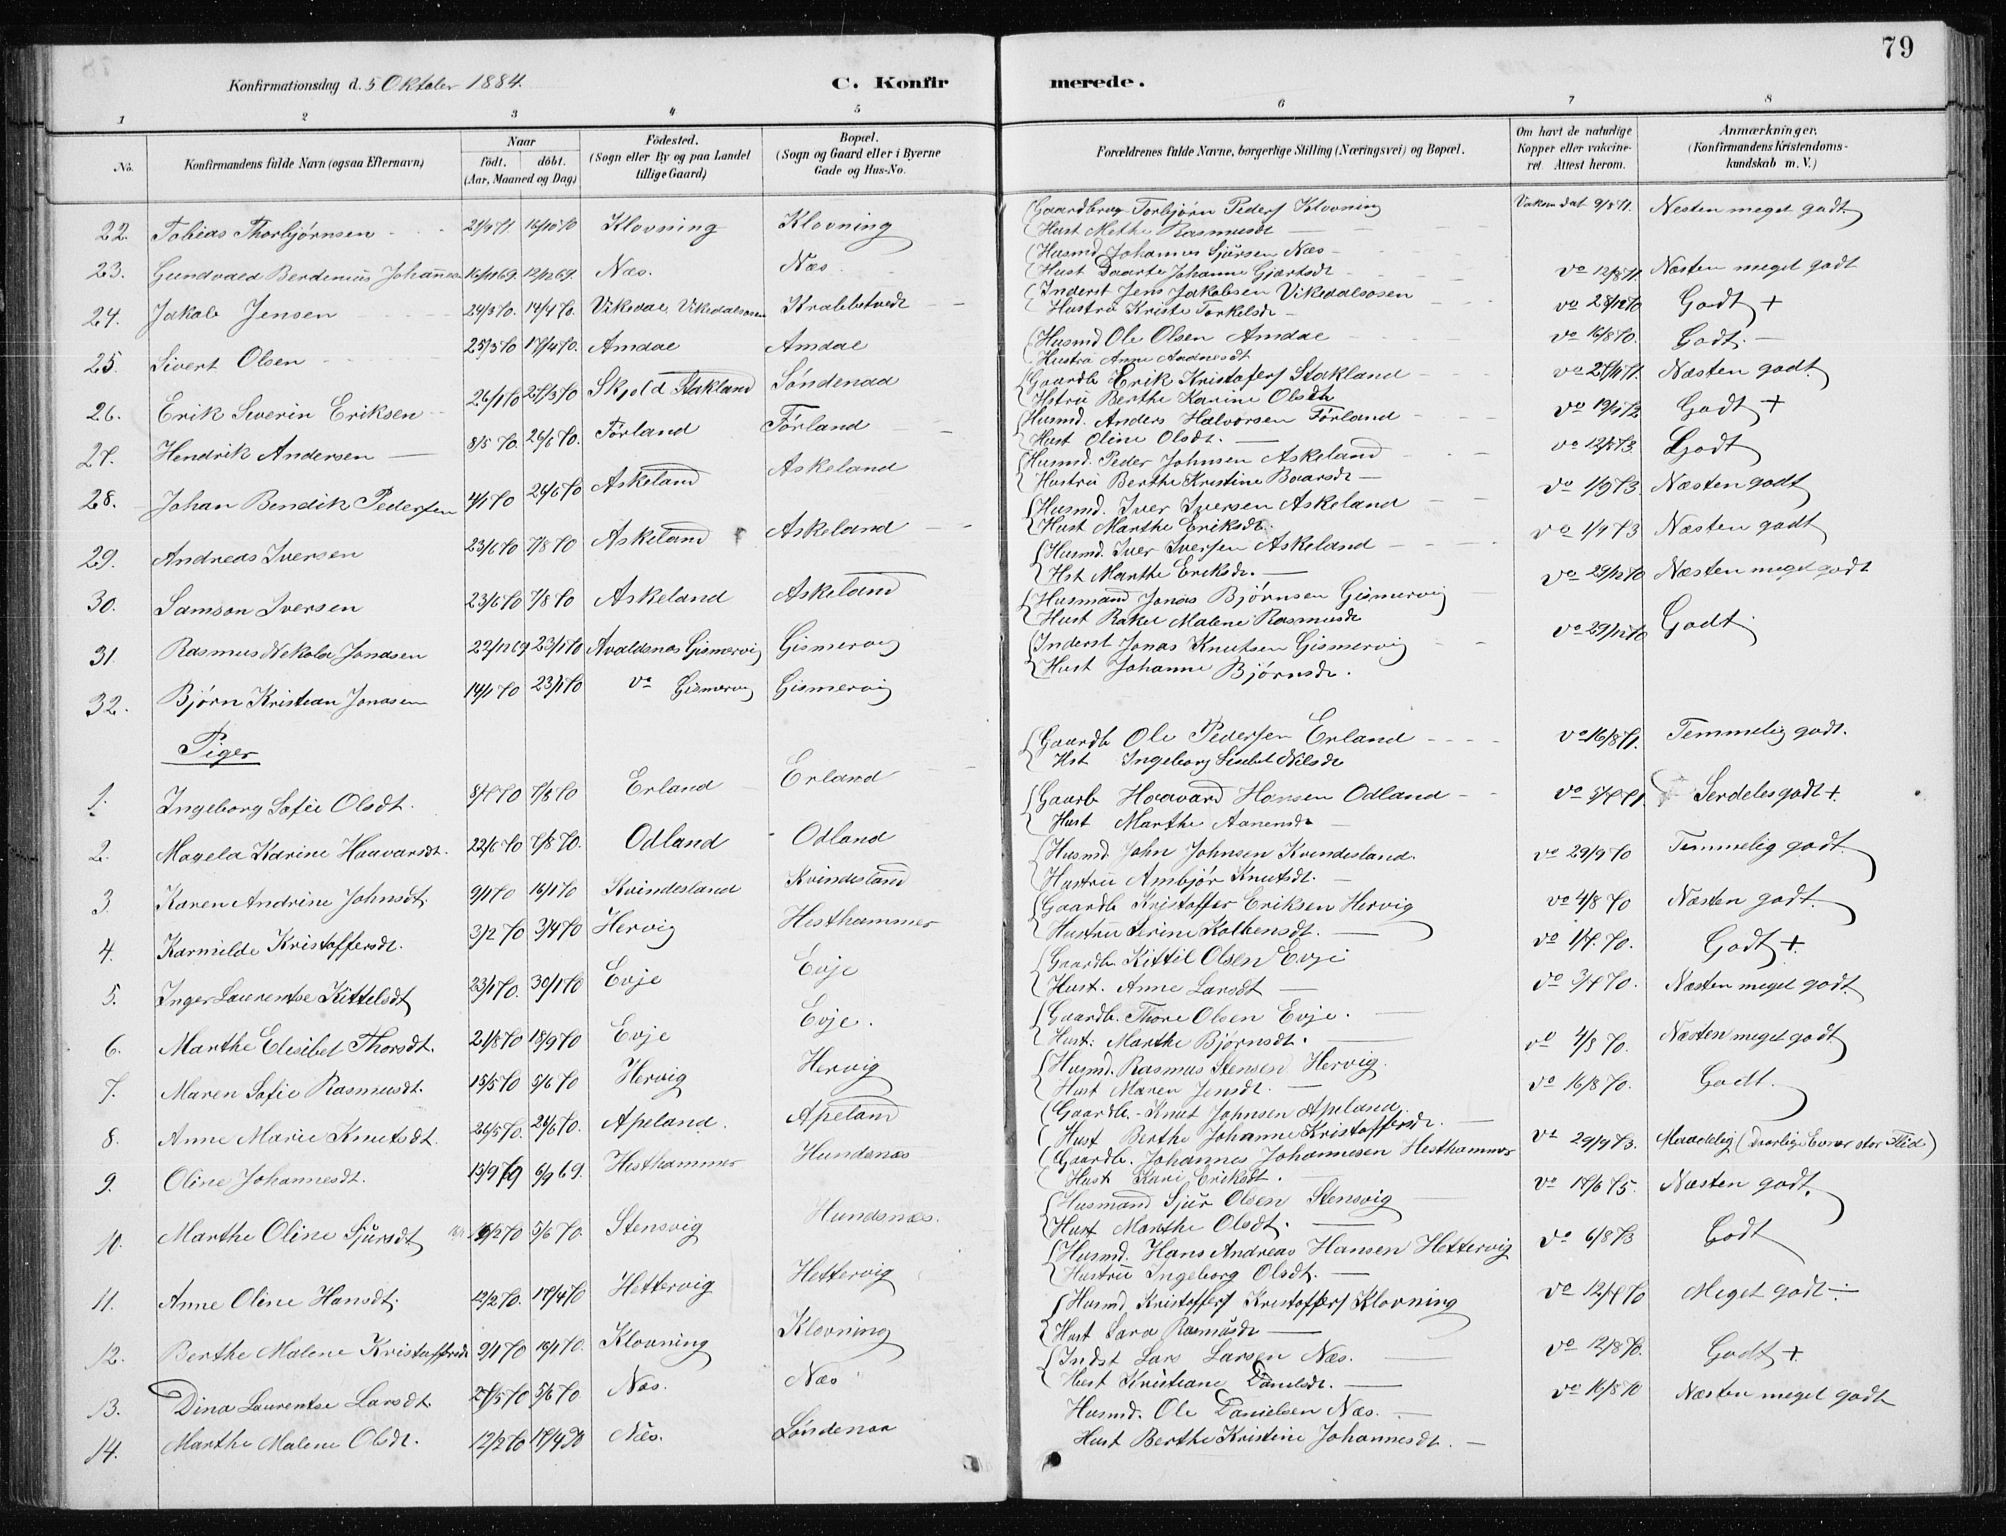 79
Konfirmationsdag d. 5 Oktober 1884.
C. Konfirmerede.
1 2 3 4 5 6 7 8
No.
Konfirmandens fulde Navn (ogsaa Efternavn)
Naar
födt. döbt.
(Aar, Maaned og Dag)
Födested.
(Sogn eller By og paa Landet
tillige Gaard)
Bopæl.
(Sogn og Gaard eller i Byerne
Gade og Hus-No.
Forældrenes fulde Navne, borgerlige Stilling (Næringsvei) og Bopæl.
Om havt de naturlige
Kopper eller vakcine-
ret. Attest herom.
Anmærkninger.
(Konfirmandens Kristendoms-
kundskab m. V.)
22. Tobias Thorbjørnsen Klovning Klovning Torbjörn Peders Klovning 9/8 71. Nesten meget godt
Hust Methe Rasmusdt
23. Gundvald Berdinius Johannes 12/12 69. Næs. Næs Husmd Johannes Sjursen Næs vo 12/8 71. Næsten meget godt
Hust Daarte Johanne Gjertsdt
24. Jakob Jensen 24/3 70. 14/4 70. Vikedal, Vikedalsosen Krabbetvedt Inderst Jens Jakobsen Vikedalsosen vo 28/12 70 Godt +
Hustru Kriste Torkelsdt
25. Sivert Olsen 25/3 70 17/4 70. Amdal Amdal Husmd Ole Olsen Amdal vo 16/8 70. Godt. -
Hustru Anne Andnesdt
26. Erik Severin Eriksen 26/1 70 27/3 70 Skjold Stakland Söndenaa Gaardb Erik Kristofers Stakland vo 27/4 71. Næsten godt
Hstru Berthe Karine Olsdt
27. Hendrik Andersen 8/5 70. 26/6 70. Förland Førland Husmd. Anders Halvorsen Førland vo 19/4 73 Godt +
Hust Oline Olsdt.
28. Johan Bendik Pedersen 4/1 70 26/6 70 Askeland Askeland Husmd. Peder Johnsen Askeland vo 12/8 73. Godt
Hustru Berthe Kristine Baarsdt
29. Andreas Iversen 23/6 70 7/8 70 Askeland Askeland Husmd. Iver Iversen Askeland vo 1/9 73. Næsten godt
Hust Marthe Eriksdt.
30. Samson Iversen 23/6 70 7/8 70 Askeland Askeland Husmd. Iver Iversen Askeland vo 1/9 73 Næsten godt
Hst Marthe Eriksdt.
31. Rasmus Nikolai Jonasen 22/12 69 23/1 70 Avaldsnæs Gismervig Gismervig Husmand Jonas Bjørnsen Gismervig vo 29/12 70 Næsten meget godt
Hust Rakel Malene Rasmusdt
32. Bjørn Kristian Jonasen 14/1 70 23/1 70 vo Gismervig Gismervig Inderst Jonas Knutsen Gismervig vo 29/12 70 Godt
Hust Johanne Bjørnsdt.
Piger
1. Ingeborg Sofie Olsdt. 8/7 70 7/8 70 Erland Erland Gaardb Ole Pedersen Erland vo 16/8 71. Temmelig godt.
Hst Ingeborg Lisabet Nilsdt
2. Magela Karine Haavarsdt. 22/6 70 7/8 70. Odland Odland Gaarb Haavard Hansen Odland vo 5/7 71. Serdeles godt +.
Hust Marthe Aanensdt
3. Karen Andrine Johnsdt. 9/1 70 16/1 70 Kvindesland Kvindesland Husmd. John Johnsen Kvindesland. vo 29/9 70 Temmelig godt.
Hustru Ambjør Knutsdt.
4. Karnilde Kristoffersdt. 3/2 70 3/4 70 Hervig Hesthammer Gaardb Kristoffer Eriksen Hervig vo 4/8 70 Næsten godt.
Hustru Serine Kolbensdt.
5. Inger Laurentse Kittelsdt 23/1 70. 30/1 70 Evje Evje Gaardb. Kittil Olsen Evje vo 1/7 70. Godt +
Hust. Anne Larsdt
6. Marthe Elisibet Thorsdt. 21/8 70 18/9 70 Evje Evje. Gaardb. Thore Olsen Evje. vo 3/7 70. Næsten meget godt.
Hust: Marthe Bjørnsdt.
7. Maren Sofie Rasmusdt. 15/5 70 5/6 70 Hervig Hervig Husmd. Rasmus Stensen Hervig. vo 4/8 70. Næsten meget godt
Hust Maren Jensdt.
8. Anne Marie Knutsdt. 26/5 70. 26/6 70. Apeland. Apeland Gaardb. Knut Johnsen Apeland. vo 16/8 70. Godt.
Hust Berthe Johanne Kristoffersdt.
9. Oline Johannesdt. 6/9 69. Hesthammer Hundsnæs Gaardb. Johannes Johannesen Hesthammer vo 29/9 73. Maadelig
Hust Kari Eriksdt.
10. Marthe Oline Sjursdt 5/6 70. Stensvig Hundsnæs. Husmand Sjur Olsen Stensvig vo 17/6 75. Næsten godt.
Hust Marthe Olsdt.
11. Anne Oline Hansdt. 12/2 70. 17/4 70 Hettervig Hettervig Husmd. Hans Andreas Hansen Hettervig vo 6/8 73 Godt
Hustru Ingeborg Olsdt.
12. Berthe Malene Kristoffersdt 9/1 70 16/1 70. Klovning Klovning Husmd Kristoffers Kristoffers Klovning vo 12/7 70 Meget godt
Hust Sara Rasmusdt
13. Dina Laurentse Larsdt. 27/5 70 5/6 70 Næs. Næs Indst Lars Larsen Næs. vo 12/8 70. Godt +.
Hust Kristiane Danielsdt.
14. Marthe Malene Olsdt. 12/2 70 Næs. Söndenaa Husmd. Ole Danielsen Næs. vo 16/8 70 Næsten meget godt
Hust Berthe Kristine Johannesdt.